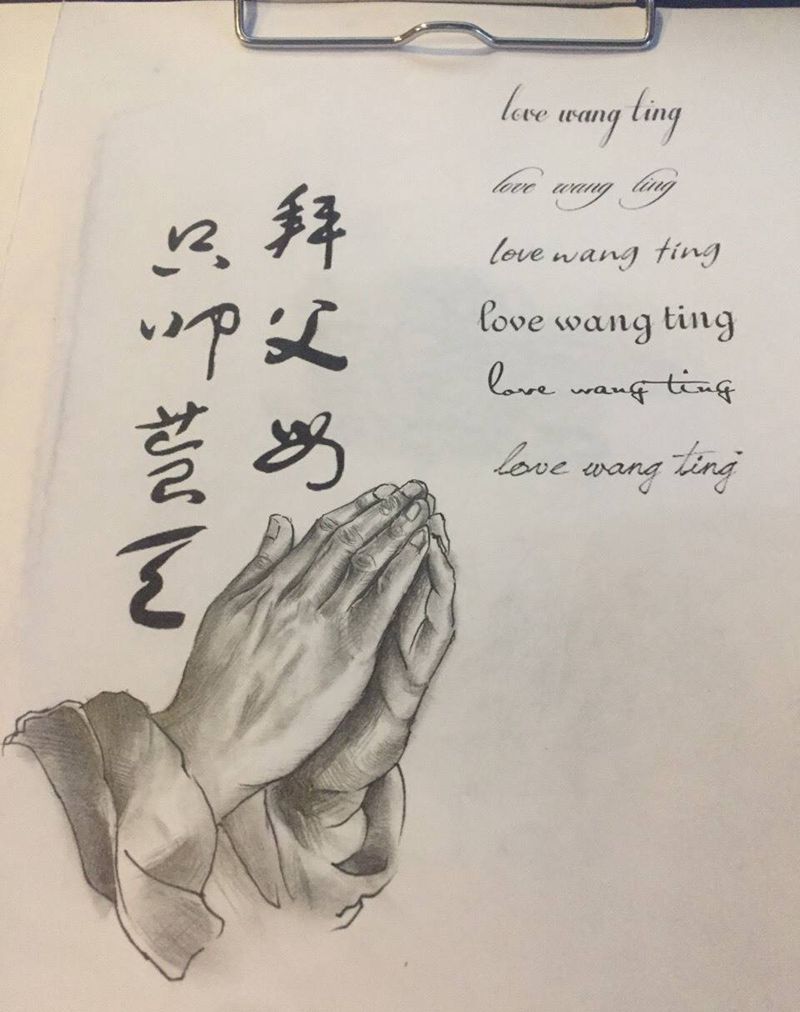 拜父母
只
love wang ting
love wang ting
love wang ting
love wang ting
love wang ting
love wang ting